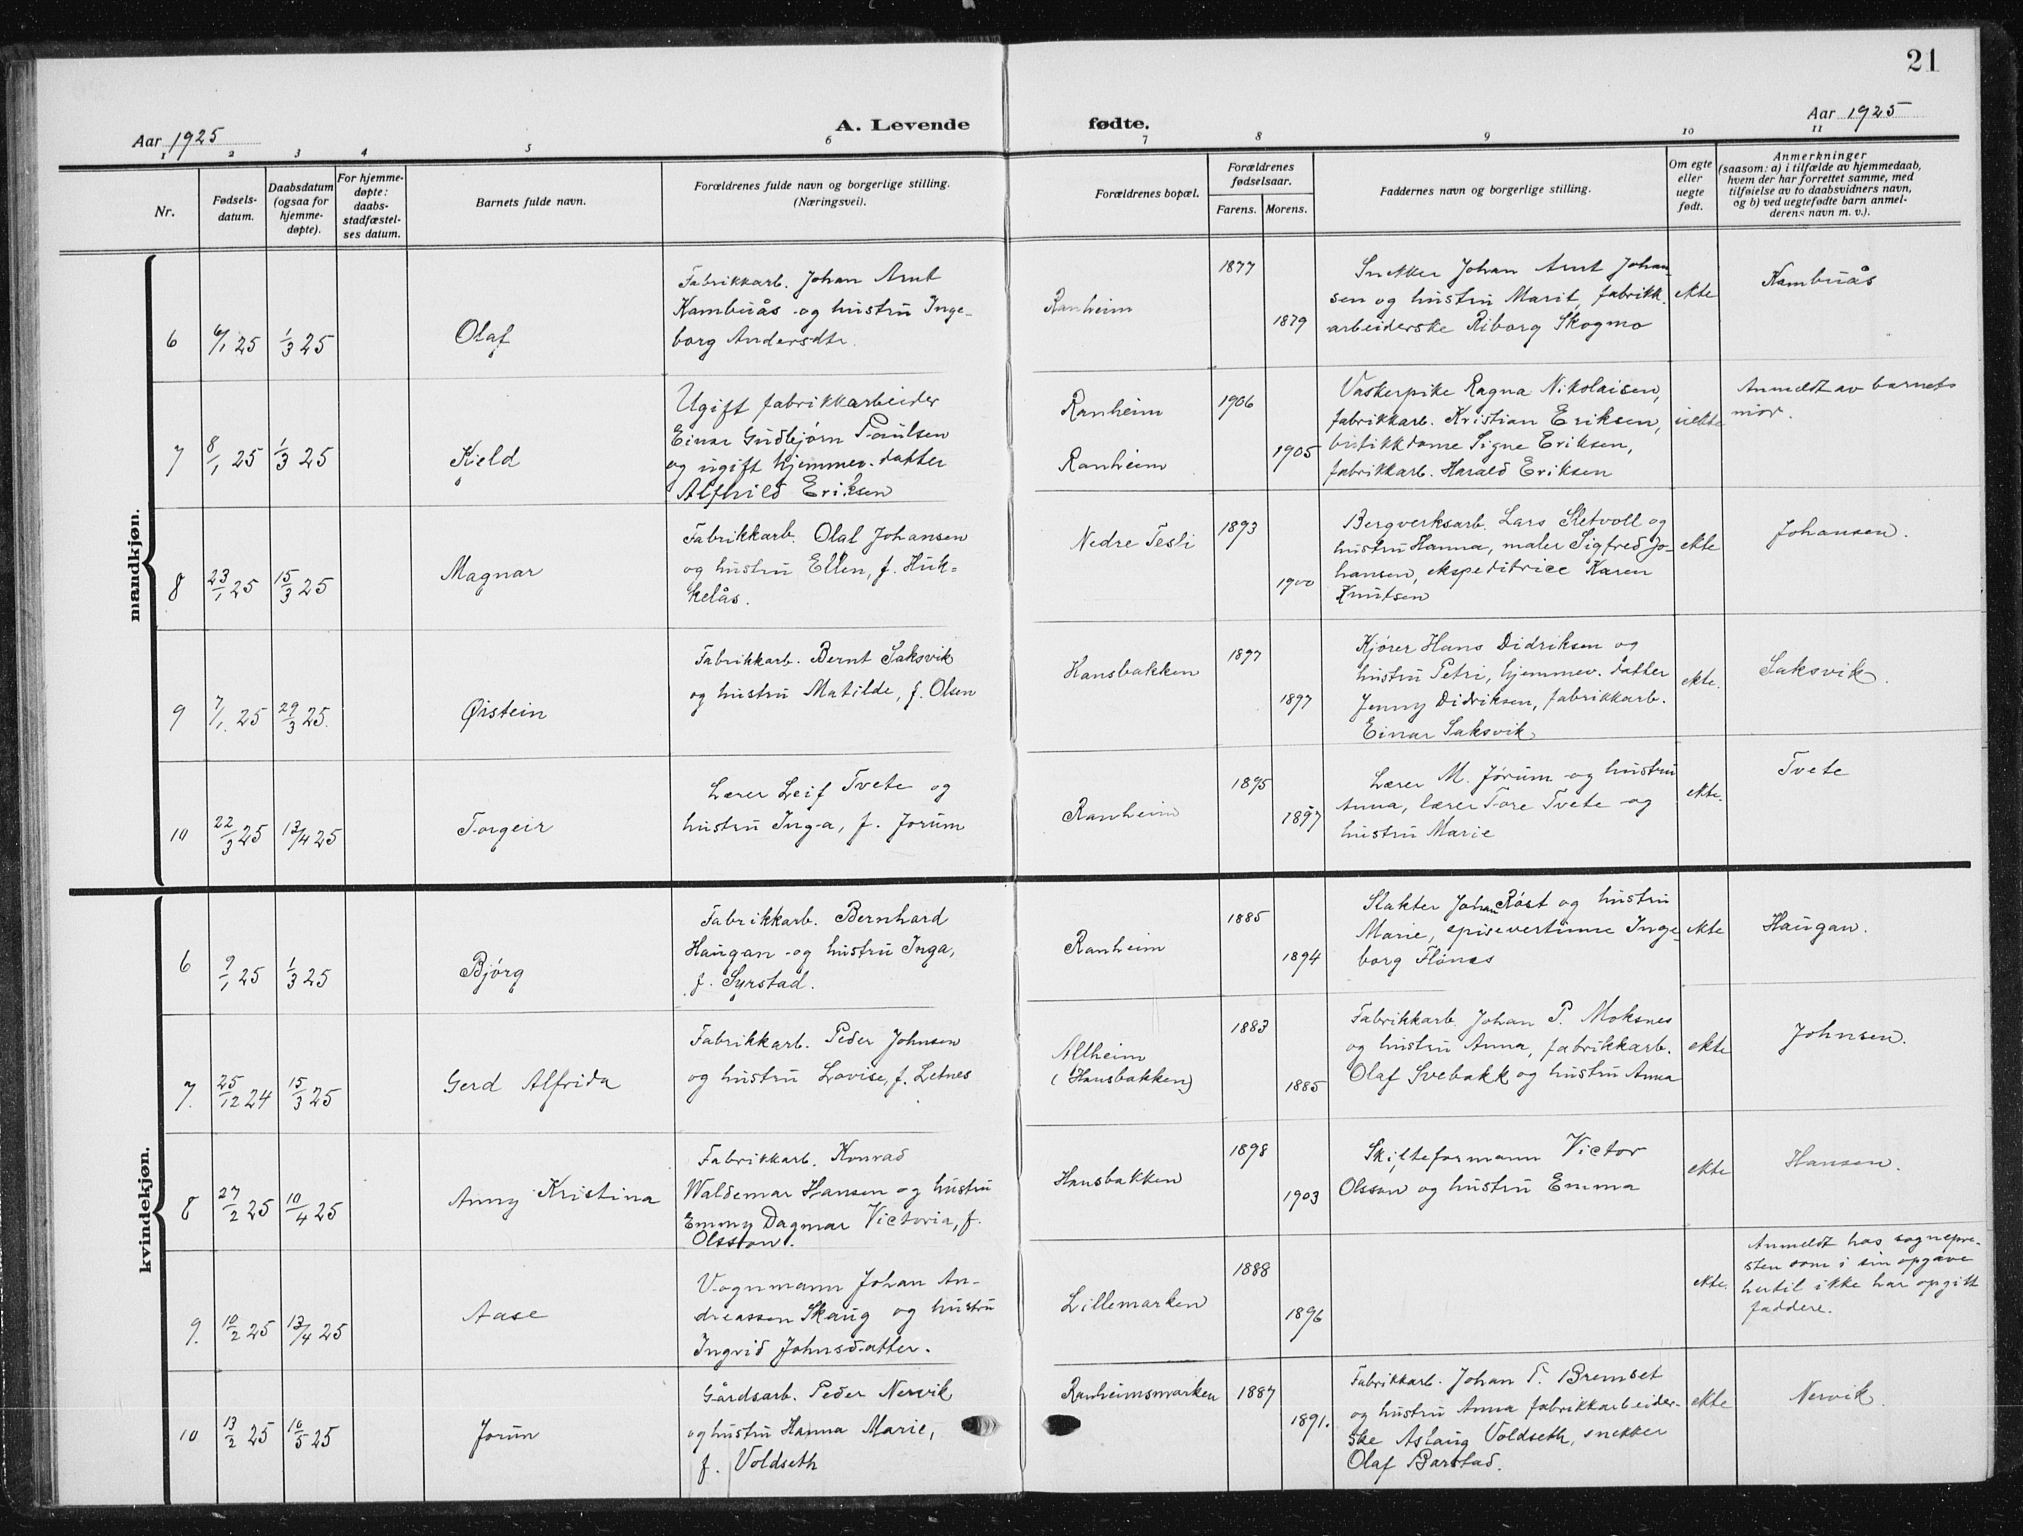 21
Aar 1925
A. Levende fødte.
Aar 1925
1 2 3 4 5 6 7 8 9 10 11
Nr.
Fødsels-
datum.
Daabsdatum
(ogsaa for
hjemme-
døpte).
For hjemme-
døpte:
daabs-
stadfæstel-
ses datum.
Barnets fulde navn.
Forældrenes fulde navn og borgerlige stilling.
(Næringsvei).
Forældrenes bopæl.
Forældrenes
fødselsaar.
Farens. Morens.
Faddernes navn og borgerlige stilling.
Om egte
eller
uegte
født.
Anmerkninger
(saasom: a) i tilfælde av hjemmedaab,
hvem der har forrettet samme, med
tilføielse av to daabsvidners navn,
og b) ved uegtefødte barn anmel-
derens navn m. v.).
mandkjøn.
6
6/1 25
1/3 25
Olaf
Fabrikkarb. Johan Arnt
Kambuås og hustru Inge-
borg Andersdtr.
Ranheim
1877
1879
Snekker Johan Arnt Johan-
sen og hustru Marit, fabrikk-
arbeiderske Riborg Skogmo
ekte
Kambuås
7
8/1 25
1/3 25
Kjeld
Ugift fabrikkarbeider
Einar Gudbjørn Paulsen
og ugift hjemmev. datter
Alfhild Eriksen
Ranheim
Ranheim
1906
1905
Vaskerpike Ragna Nikolaisen,
fabrikkarb. Kristian Eriksen,
butikkdame Signe Eriksen,
fabrikkarb. Harald Eriksen
uekte
Anmeldt av barnets
mor.
8
23/1 25
15/3 25
Magnar
Fabrikkarb. Olaf Johansen
og hustru Ellen, f. Huk-
kelås.
Nedre Tesli
1893
1900
Bergverksarb. Lars Sletvoll og
hustru Hanna, maler Sigfred Jo-
hansen, ekspeditrice Karen
Knutsen
ekte
Johansen.
9
7/1 25
29/3 25.
Øistein
Fabrikkarb. Bernt Saksvik
og hustru Matilde, f. Olsen
Hansbakken
1897
1897
Kjører Hans Didriksen og
hustru Petri, hjemmev. datter
Jenny Didriksen, fabrikkarb.
Einar Saksvik
ekte.
Saksvik.
10
22/3 25
13/4 25
Torgeir
Lærer Leif Tvete og
hustru Inga, f. Jorum
Ranheim
1895
1897
Lærer M. Jørum og hustru
Anna, lærer Tore Tvete og
hustru Marie
ekte.
Tvete
kvindekjøn.
6
9/1 25
1/3 25
Bjørg
Fabrikkarb. Bernhard
Haugan og hustru Inga,
f. Syrstad.
Ranheim
1885
1894
Slakter Johan Røst og hustru
Marie, spisevertinne Inge-
borg Flønes
ekte
Haugan.
7.
25/12 24
15/3 25
Gerd Alfrida
Fabrikkarb. Peder Johnsen
og hustru Lovise, f. Letnes
Allheim
(Hansbakken)
1883
1885
Fabrikkarb. Johan P. Moksnes
og hustru Anna, fabrikkarb.
Olaf Svebakk og hustru Anna
ekte
Johnsen.
8
27/2 25
10/4 25
Anny Kristina
Fabrikkarb. Konrad
Waldemar Hansen og hustru
Emmy Dagmar Victoria, f.
Olsson.
Hansbakken
1898
1903
Skifteformann Victor
Olsson og hustru Emma
ekte
Hansen.
9.
10/2 25
13/4 25
Aase
Vognmann Johan An-
dreassen Skaug og hustru
Ingrid Johnsdatter.
Lillemarken
1888
1896
ekte.
Anmeldt hos sognepre-
sten som i sin opgave
hertil ikke har opgitt
faddere.
10
13/2 25
10/5 25
Jorun
Gårdsarb. Peder Nervik
og hustru Hanna Marie,
f. Voldseth
Ranheimsmarken
1887
1891.
Fabrikkarb. Johan P. Bremset
og hustru Anna fabrikkarbeider-
ske Aslaug Voldseth, snekker
Olaf Barstad.
ekte
Nervik.